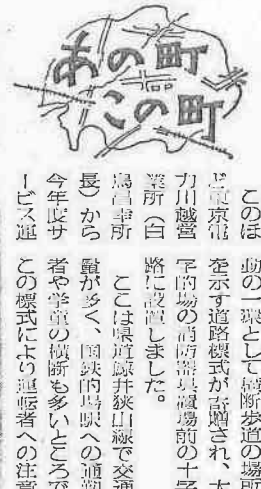 あの町
この町
このほ
ど東京電
力川越営
業所（白
鳥昌幸所
長）から
今年度サ
ービス運
動の一環として横断歩道の場所
を示す道路標式が寄贈され、大
字的場の消防器具置場前の十字
路に設置しました。
ここは県道線井狭山線で交通
量が多く、国鉄的場駅への通勤
者や学童の横断も多いところで
この標式により運転者への注意